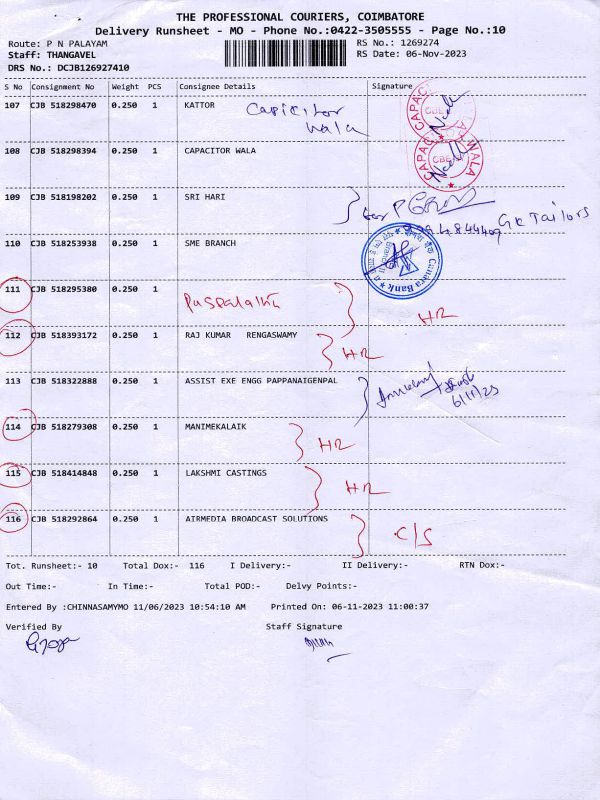 THE PROFESSIONAL COURIERS, COIMBATORE
Delivery Runsheet - MO - Phone No.:0422-3505555 - Page No.:10
Route: P N PALAYAM RS No.: 1269274
Staff: THANGAVEL RS Date: 06-Nov-2023
DRS No.: DCJB126927410
S No Consignment No Weight PCS Consignee Details Signature
107 CJB 518298470 0.250 1 KATTOR Capicitor
wala
108 CJB 518298394 0.250 1 CAPACITOR WALA
109 CJB 518198202 0.250 1 SRI HARI for
GK Tailors
110 CJB 518253938 0.250 1 SME BRANCH
Canara Bank
111 CJB 518295380 0.250 1
HR
112 CJB 518393172 0.250 1 RAJ KUMAR RENGASWAMY
HR
113 CJB 518322888 0.250 1 ASSIST EXE ENGG PAPPANAIGENPAL
6/11/23
114 CJB 518279308 0.250 1 MANIMEKALAIK
HR
115 CJB 518414848 0.250 1 LAKSHMI CASTINGS
HR
116 CJB 518292864 0.250 1 AIRMEDIA BROADCAST SOLUTIONS
C/S
Tot. Runsheet:- 10 Total Dox:- 116 I Delivery:- II Delivery:- RTN Dox:-
Out Time:- In Time:- Total POD:- Delvy Points:-
Entered By :CHINNASAMYMO 11/06/2023 10:54:10 AM Printed On: 06-11-2023 11:00:37
Verified By Staff Signature